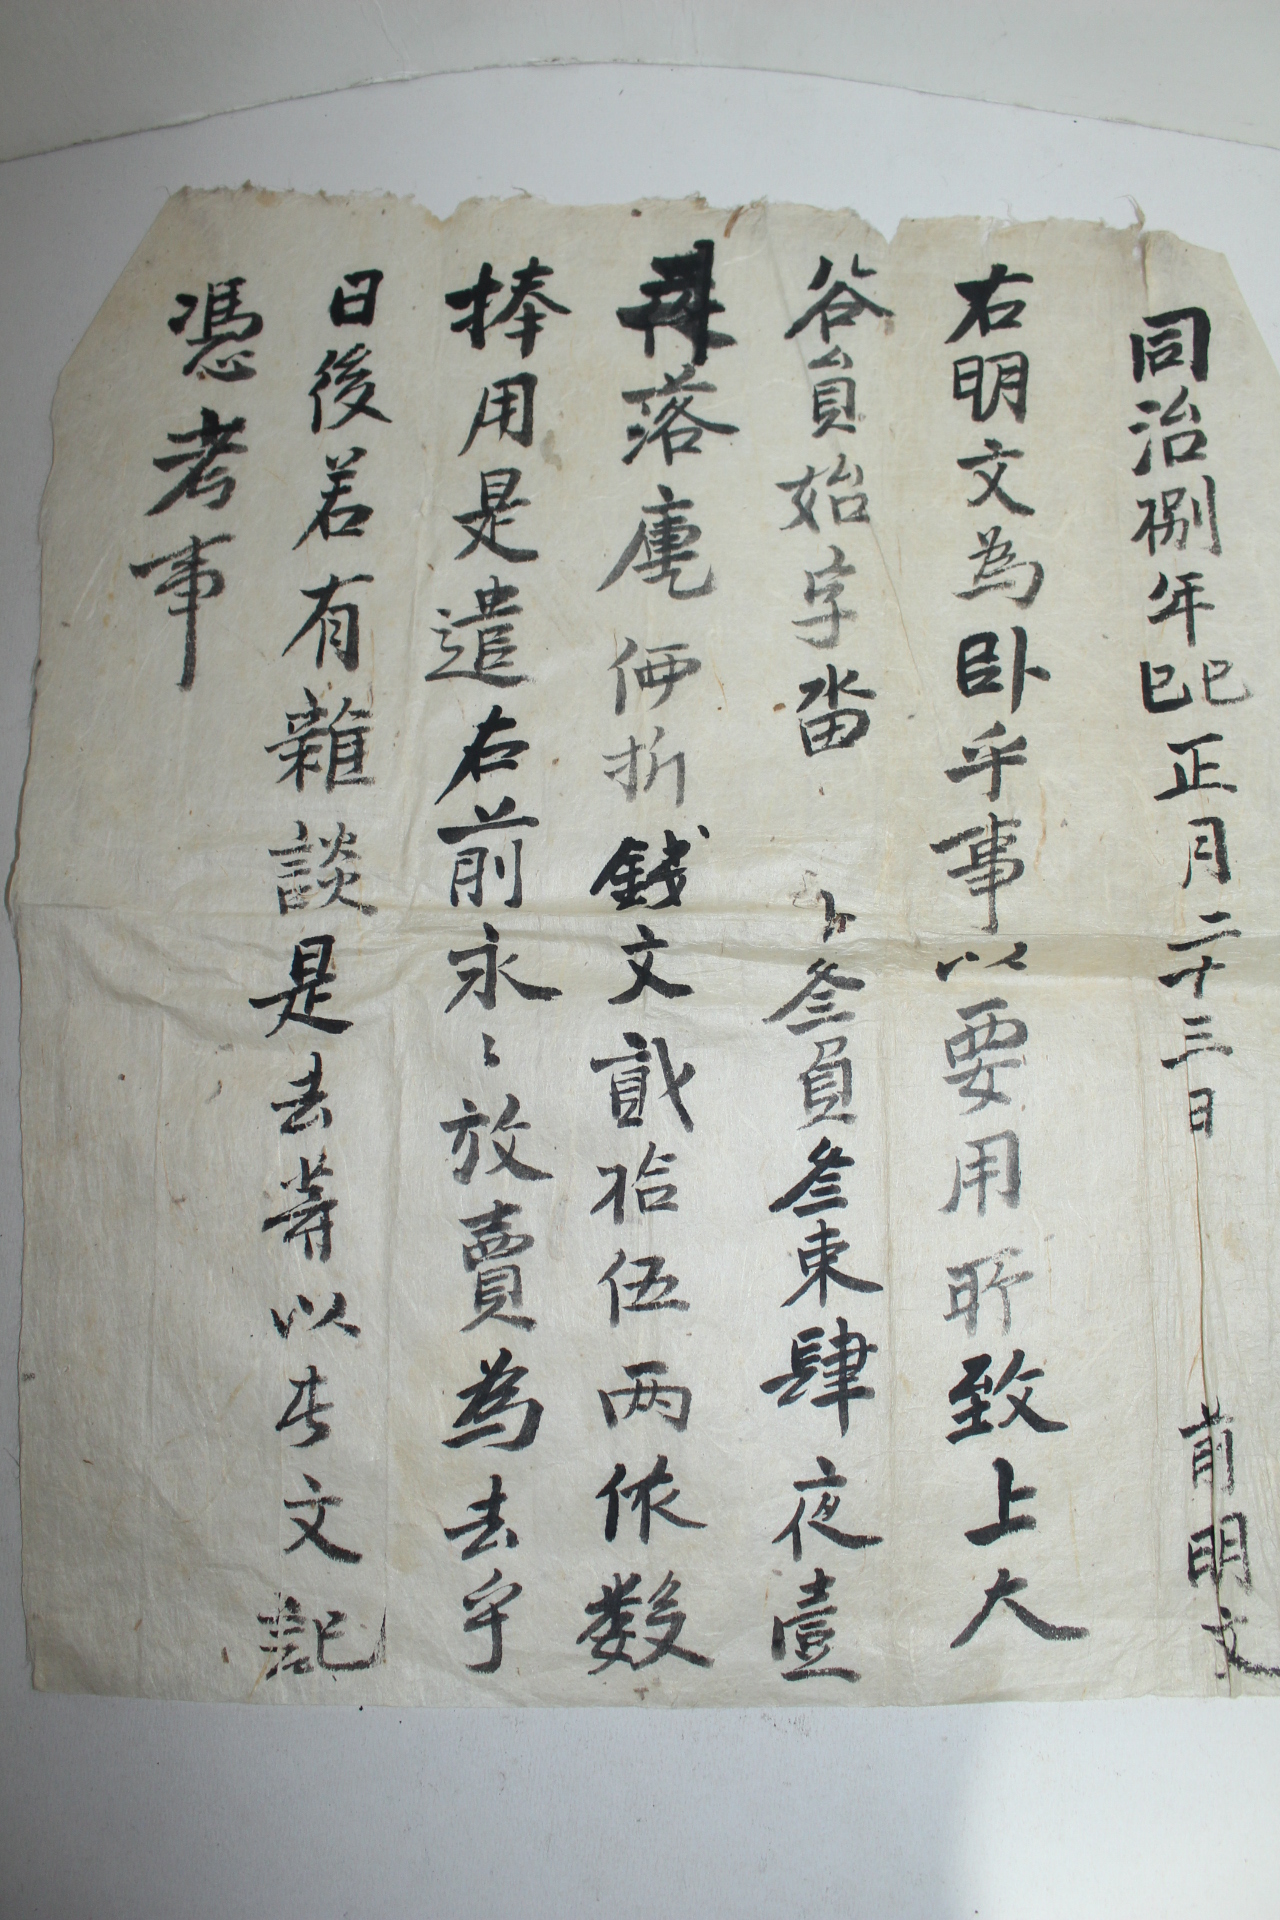 同治捌年己巳正月二十三日 前明文
右明文為卧乎事以要用所致上大
谷員始字畓 卜叁負叁束肆夜壹
落庫乙 価折錢文貳拾伍兩依数
捧用是遣右前永〻放賣為去乎
日後若有雜談是去等以此文記
憑考事